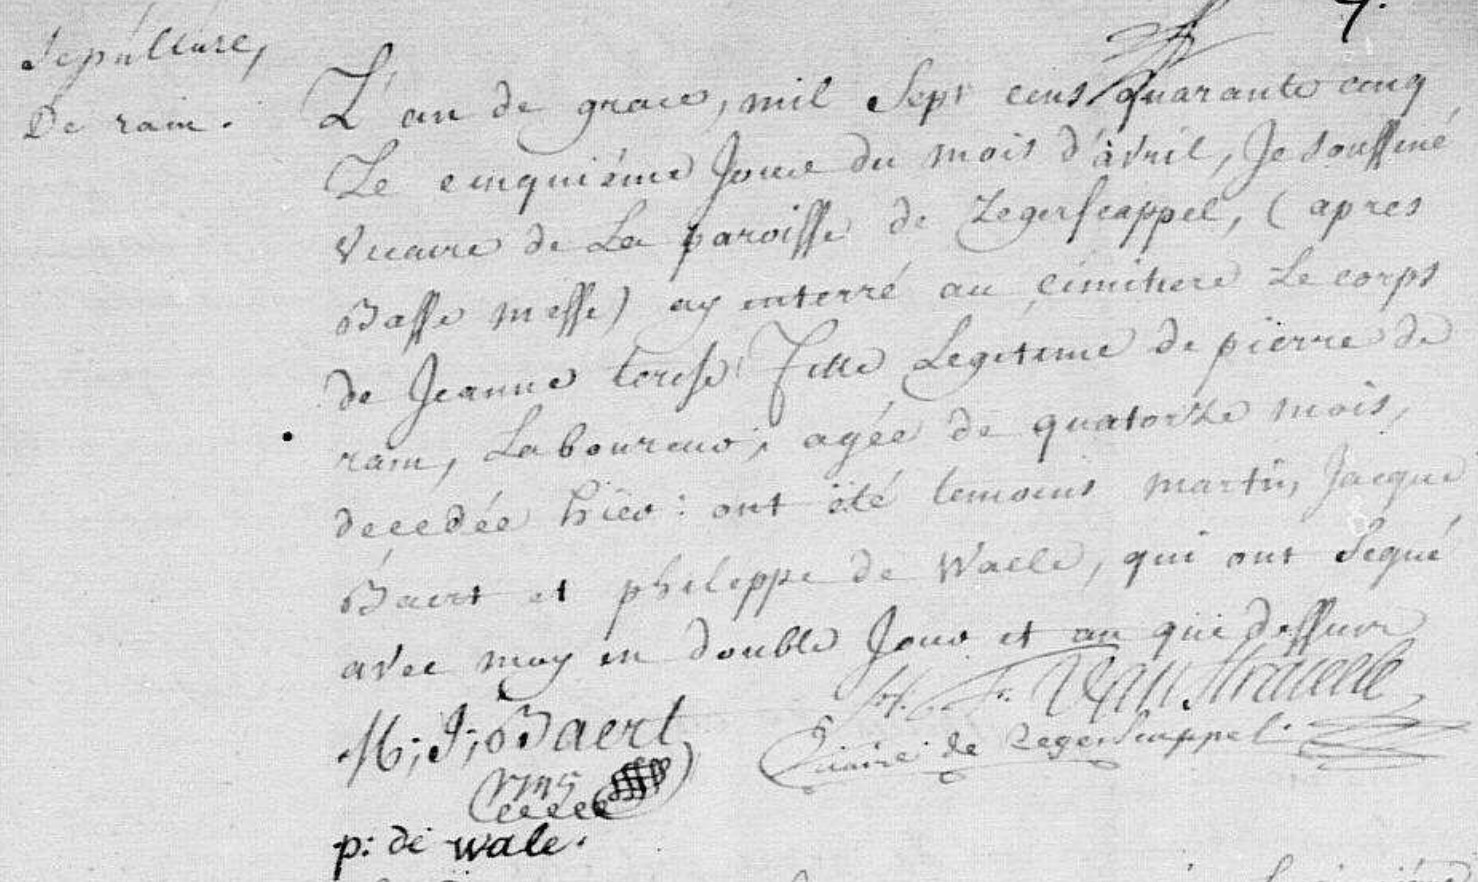 7.
Sepulture,
De ram.
L'an de grace, mil Sept cens quarante cinq
Le cinquiéme Jour du mois d'avril, Je soussiné
vicaire de La paroisse de Zegerscappel, (apres
Basse messe) ay enterré au cimitiere Le corps
de Jeanne terese fille Legitime de pierre de
ram, Laboureur, agée de quatorze mois,
decedée hier : ont été temoins martin, Jacque
Baert et phileppe de Waele, qui ont Sigué
avec moy en double Jour et an que dessure
Van Straecele
M; J; Baert
vicaire de Zegerscappel.
1745
p: de wale.